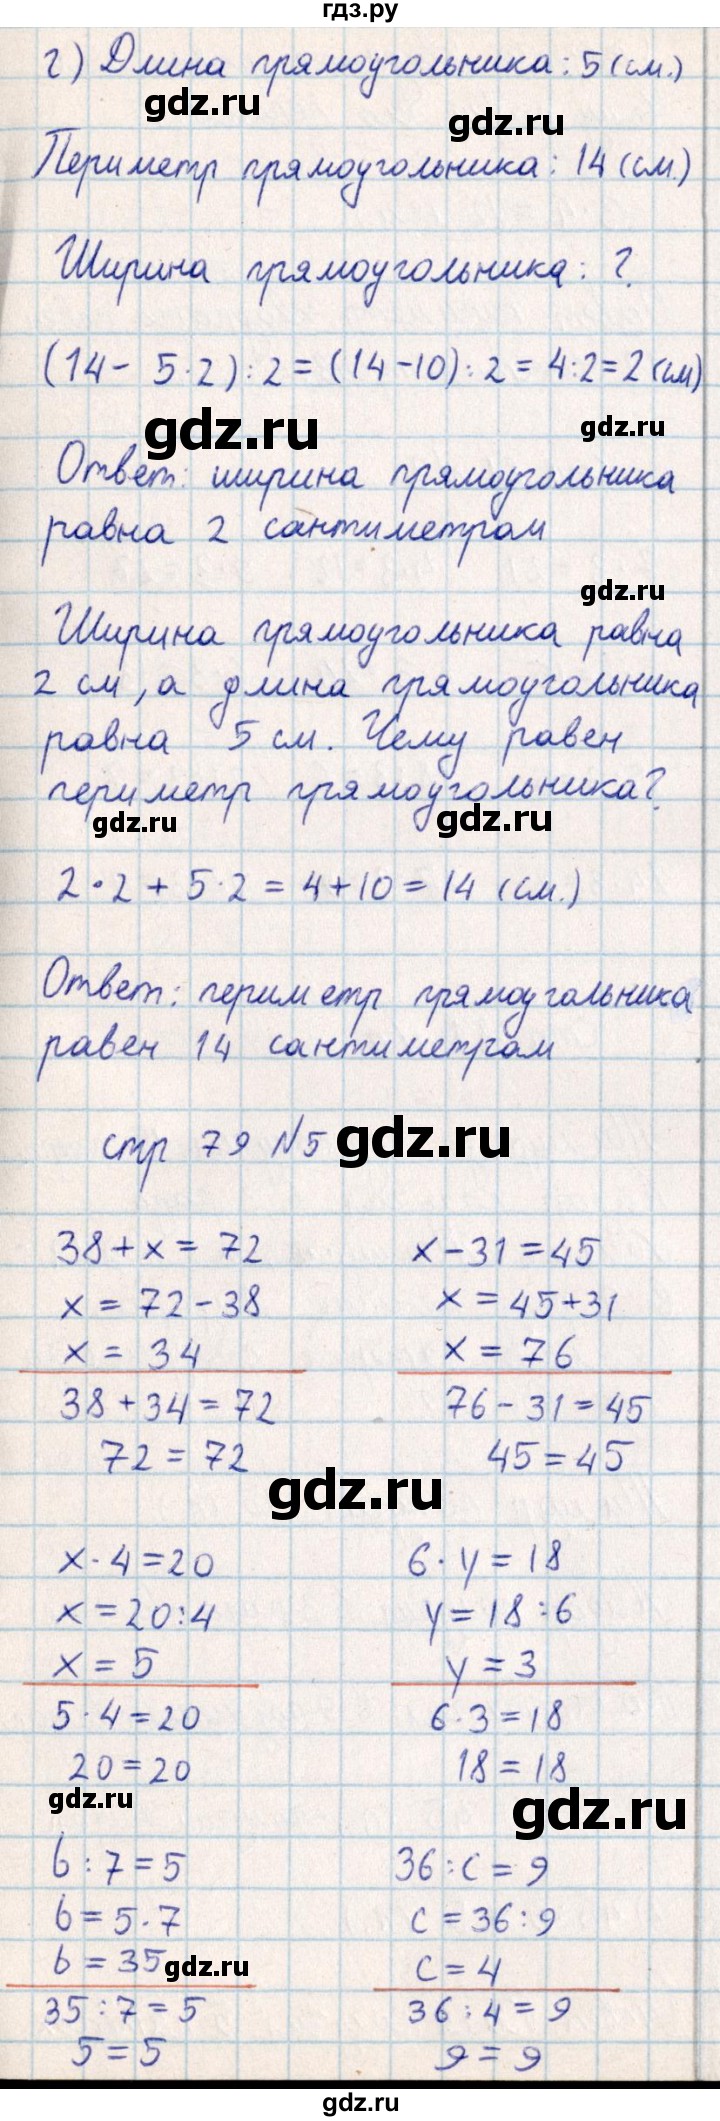 гдз.ру
г) Длина прямоугольника: 5 (см.)
gdz.ru
gdz.ru
Периметр прямоугольника: 14 (см.)
Ширина прямоугольника: ?
(14 - 5·2) : 2 = (14-10) : 2 = 4:2=2 (см)
gdz.ru
gdz.ru
Ответ: ширина прямоугольника
равна 2 сантиметрам
gdz.ru
Ширина прямоугольника равна
2 см, а длина прямоугольника
равна 5 см. Чему равен
периметр прямоугольника?
gdz.ru
gdz.ru
2·2 + 5·2 = 4+10 = 14 (см.)
Ответ: периметр прямоугольника
равен 14 сантиметрам
стр 79 №5
gdz.ru
38 + x = 72
x = 72 - 38
x = 34
38 + 34 = 72
72 = 72
x - 31 = 45
x = 45+31
x = 76
76 - 31 = 45
45 = 45
gdz.ru
x · 4 = 20
x = 20:4
x = 5
5 · 4 = 20
20 = 20
gdz.ru
6 · y = 18
y = 18 : 6
y = 3
6·3 = 18
18 = 18
gdz.ru
b : 7 = 5
b = 5·7
b = 35
gdz.ru
35 : 7 = 5
5 = 5
36 : c = 9
c = 36:9
c = 4
36 : 4 = 9
9 = 9
gdz.ru